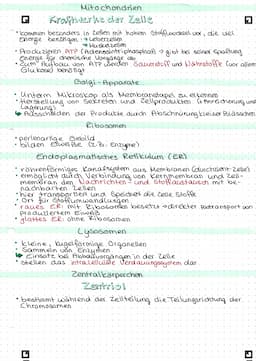 Mitochondrien
Kraftwerke der Zelle
• kommen besonders in Zellen mit hohem Stoffwechsel vor, die viel
Energie benötigen → Leberzellen
→ Muskelzellen
• Produzieren ATP (Adenosintriphosphat) → gibt bei seiner Spaltung
Energie für chemische Vorgänge ab
• Zum Aufbau von ATP werden Sauerstoff und Nährstoffe (vor allem
Glukose) benötigt
Golgi-Apparate
• Unterm Mikroskop als Membranstapel zu erkennen
• Herstellung von Sekreten und Zellprodukten
Lagerung
↳ Ausscheiden der Produkte durch Abschnürung kleiner Bläschen
Ribosomen
• perlenartige Gebilde
• bilden Eiweiße (z.B. Enzyme)
Endoplasmatisches Retikulum (ER)
• röhrenförmiges Kanalsystem aus Membranen (durchzieht Zelle)
• ermöglicht durch Verbindung von Kernmembran und Zell-
membran den Nachrichten- und Stoffaustausch mit be-
nachbarten Zellen
• hier transportieren und Speichert die Zelle Stoffe
• Ort für Stoffumwandlungen
• raues ER: mit Ribosomen besetzt → direkter von
produziertem Eiweiß
• glattes ER: ohne Ribosomen
Lysosomen
• kleine, kugelförmige Organellen
• Sammeln von Enzymen
↳ Einsatz bei Abbauvorgängen in der Zelle
• stellen das intrazelluläre Verdauungssystem dar
Zentralkörperchen
Zentriol
• bestimmt während der Zellteilung die Teilungsrichtung der
Chromosomen